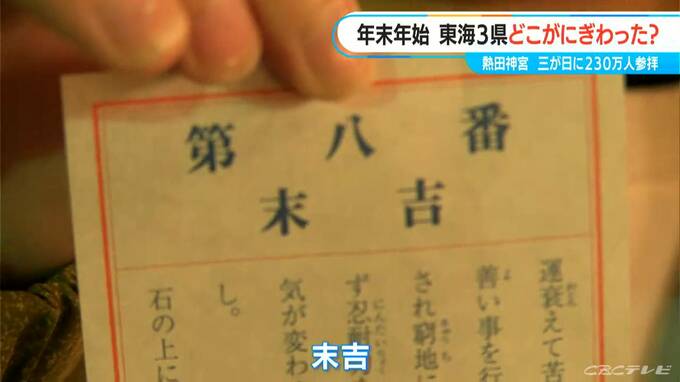 年末年始 東海3県どこがにぎわった?
熱田神宮 三が日に230万人参拝
第八番
末吉
運衰えて苦
善い事を行
され窮地に
ず忍耐
気が変わ
し。
石の上に
末吉
CBCテレビ